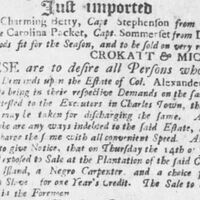 Just imported
Charming Betty, Capt Stephenson from
Carolina Packet, Capt. Sommerset from
ods fit for the Season, and to be sold on very
CROKATT & MIC
ESE are to desire all Persons who
Demands upon the Estate of Col. Alexander
to bring in their respective Demands on the
ested to the Executors in Charles Town, th
may be taken for discharging the same. A
are any ways indebted to the said Estate,
charge the same with all convenient Speed. A
to give Notice, that on Thursday the 14th o
exposed to Sale at the Plantation of the said C
Island, a Negro Carpenter. and a choice P
Slaves for one Year's Credit. The Sale to
the Forenoon